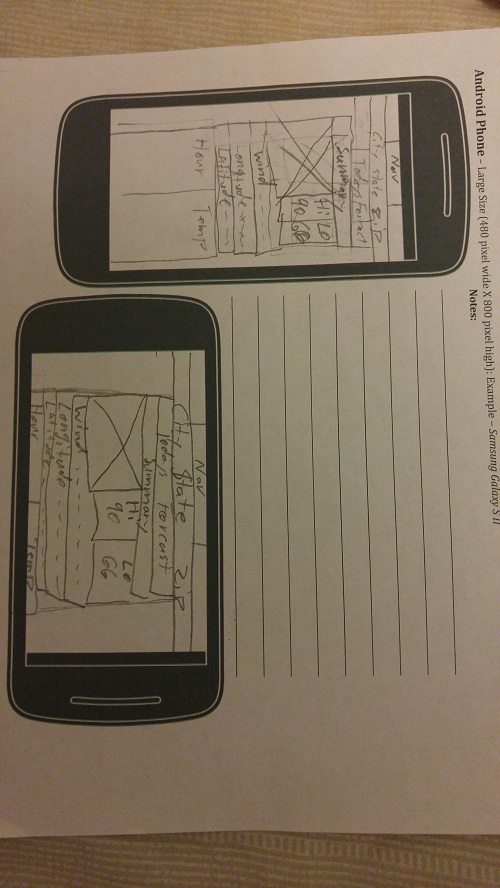 Android Phone – Large Size (480 pixel wide X 800 pixel high): Example – Samsung Galaxy S II
Notes:
Nav
City State ZIP
Todays Forcast
Summary
Hi Lo
90
Wind
Longitude
Latitude
Hour Temp
Nav
City State ZIP
Todays Forcast
Summary
Hi Lo
90 66
Wind
Longitude
Latitude
Hour Temp